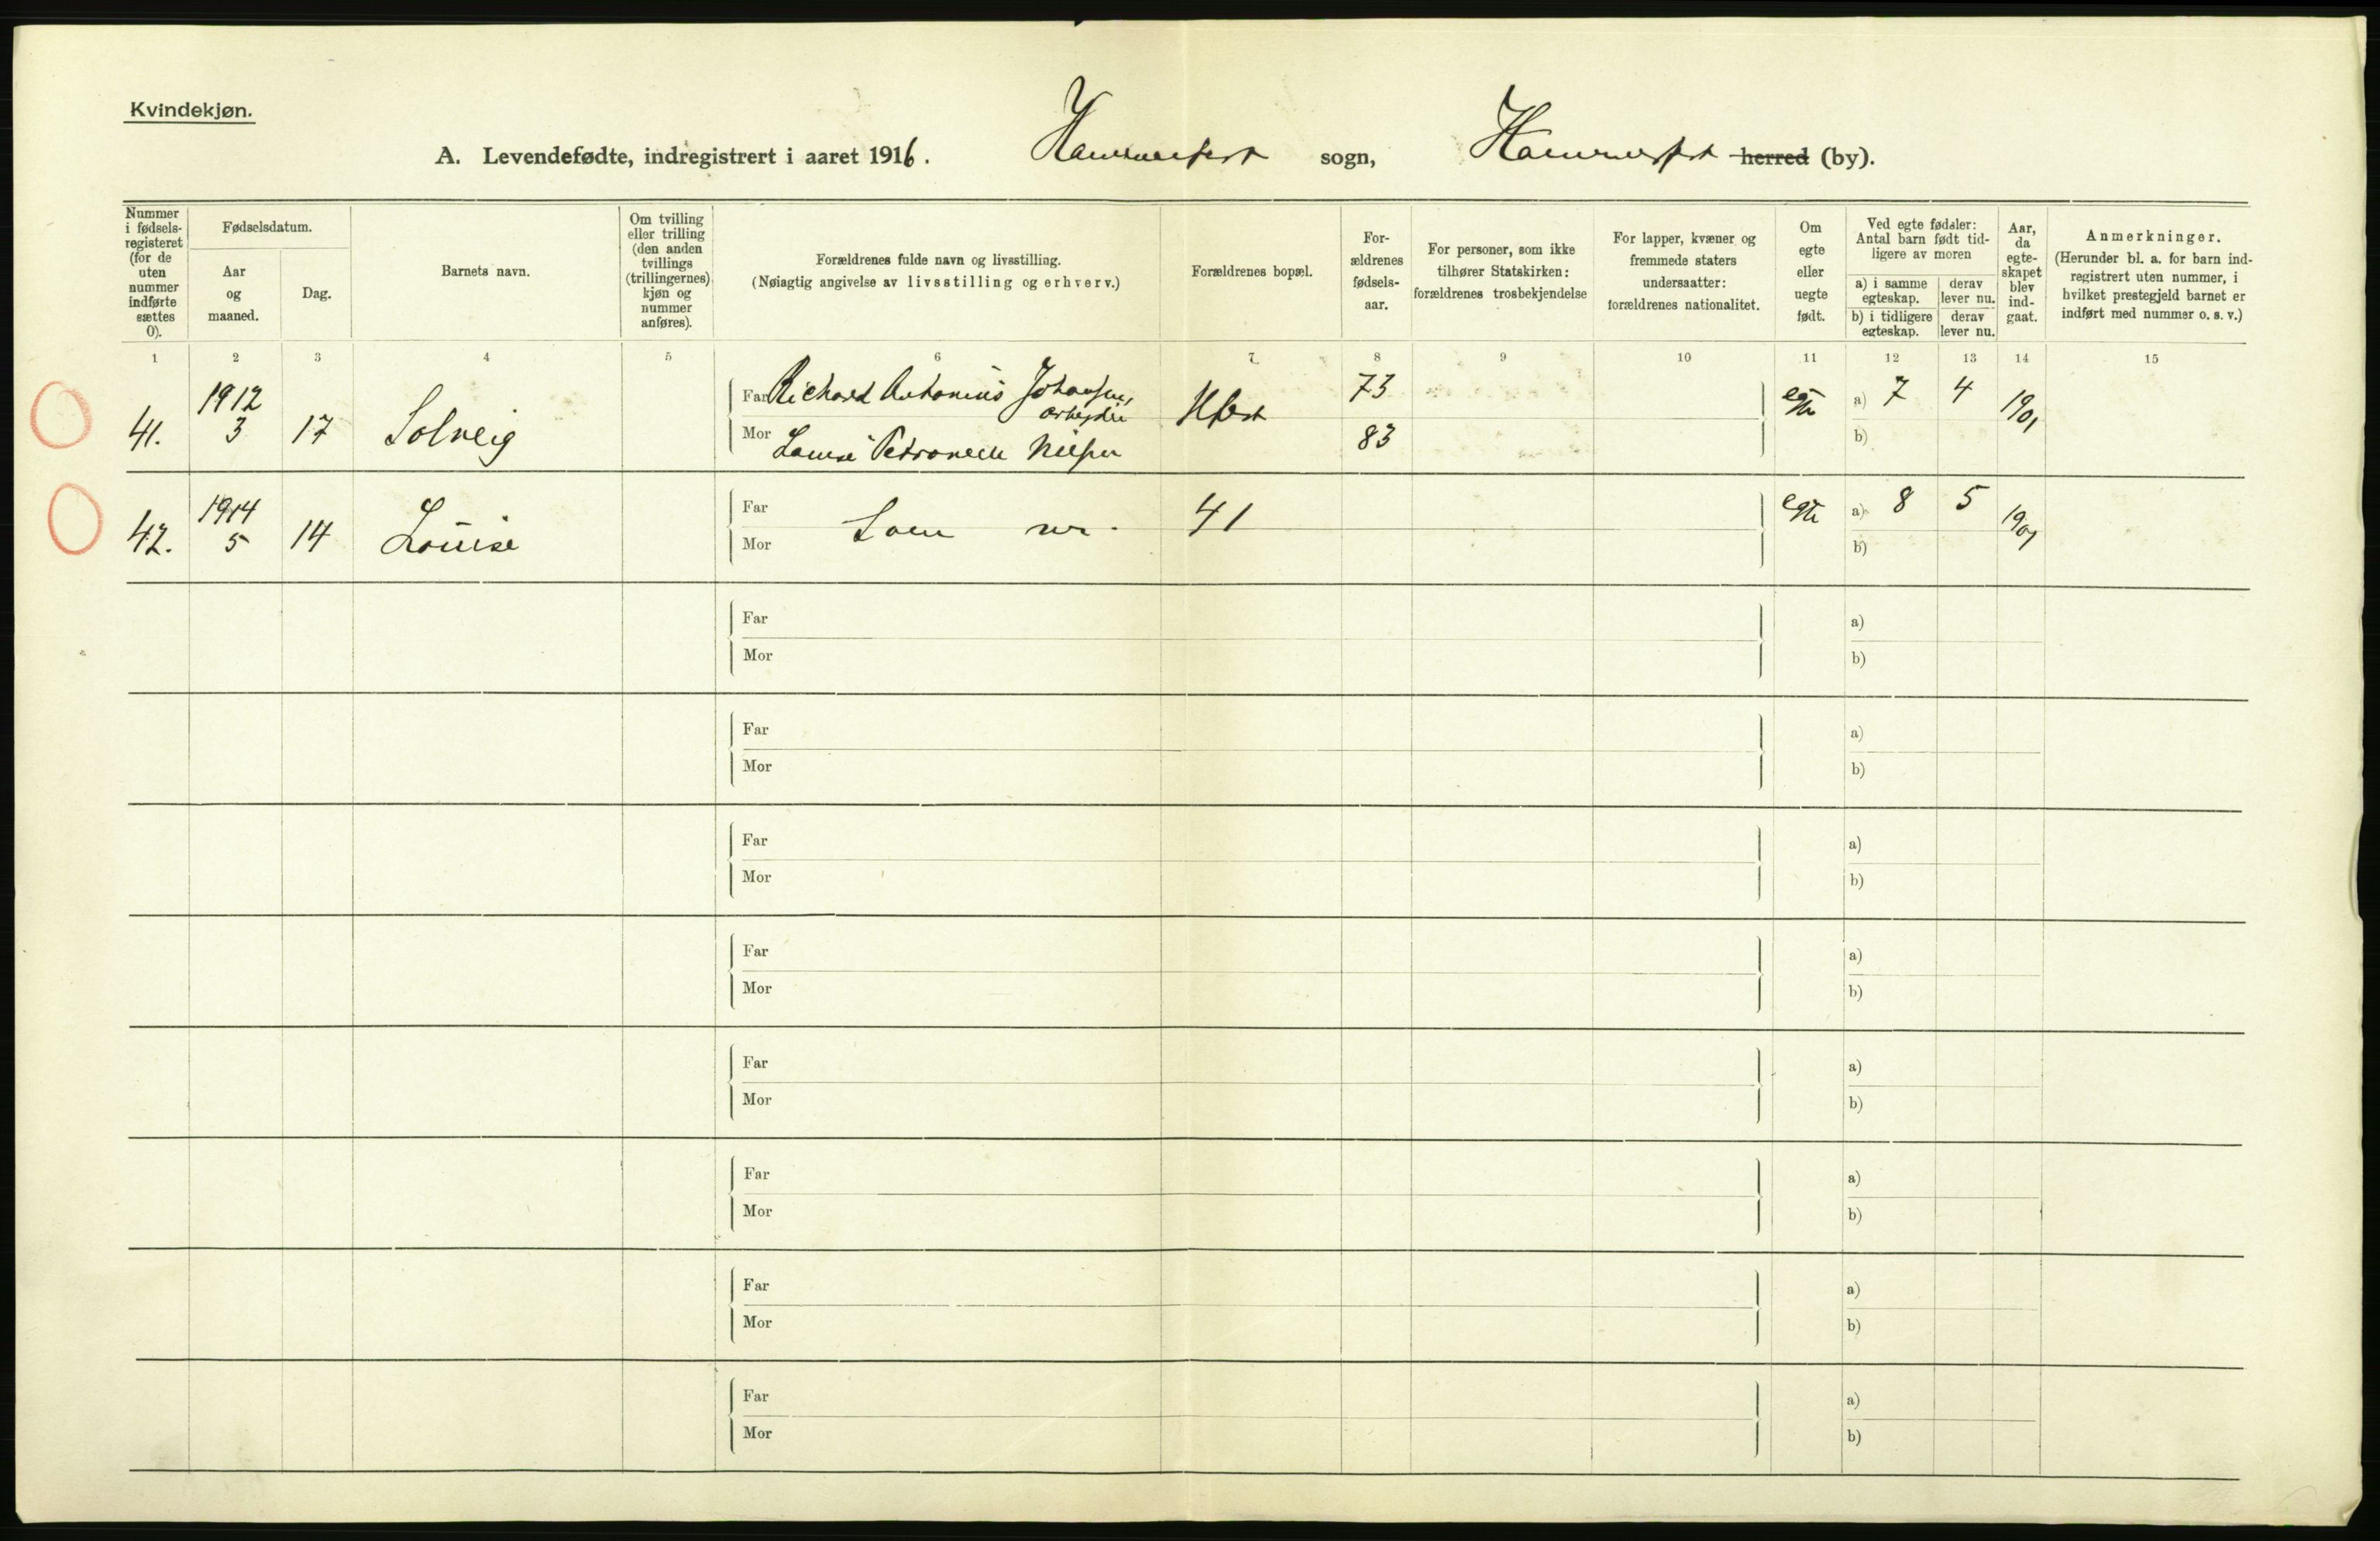 Kvindekjøn.
A. Levendefødte, indregistrert i aaret 1916. Hammerfest sogn, Hammerfest herred (by).
Nummer i fødselsregisteret (for de uten nummer indførte sættes 0).
Fødselsdatum.
Aar og maaned.
Dag.
Barnets navn.
Om tvilling eller trilling (den anden tvillings (trillingernes) kjøn og nummer anføres).
Forældrenes fulde navn og livsstilling.
(Nøiagtig angivelse av livsstilling og erhverv.)
Forældrenes bopæl.
Forældrenes fødselsaar.
For personer, som ikke tilhører Statskirken: forældrenes trosbekjendelse
For lapper, kvæner og fremmede staters undersaatter: forældrenes nationalitet.
Om egte eller uegte født.
Ved egte fødsler: Antal barn født tidligere av moren
a) i samme egteskap.
derav lever nu.
b) i tidligere egteskap.
derav lever nu.
Aar, da egteskapet blev indgaat.
Anmerkninger.
(Herunder bl. a. for barn indregistrert uten nummer, i hvilket prestegjeld barnet er indført med nummer o. s. v.)
1 2 3 4 5 6 7 8 9 10 11 12 13 14 15
41. 1912 3 17 Solveig
Far Richard Antonius Johansen, arbeyder Hfest 73 egte a) 7 4 1901
Mor Louise Petronelle Nilsen 83 b)
42. 1914 5 14 Louise
Far Mor Som nr. 41 egte a) 8 5 1901
b)
Far a)
Mor b)
Far a)
Mor b)
Far a)
Mor b)
Far a)
Mor b)
Far a)
Mor b)
Far a)
Mor b)
Far a)
Mor b)
Far a)
Mor b)